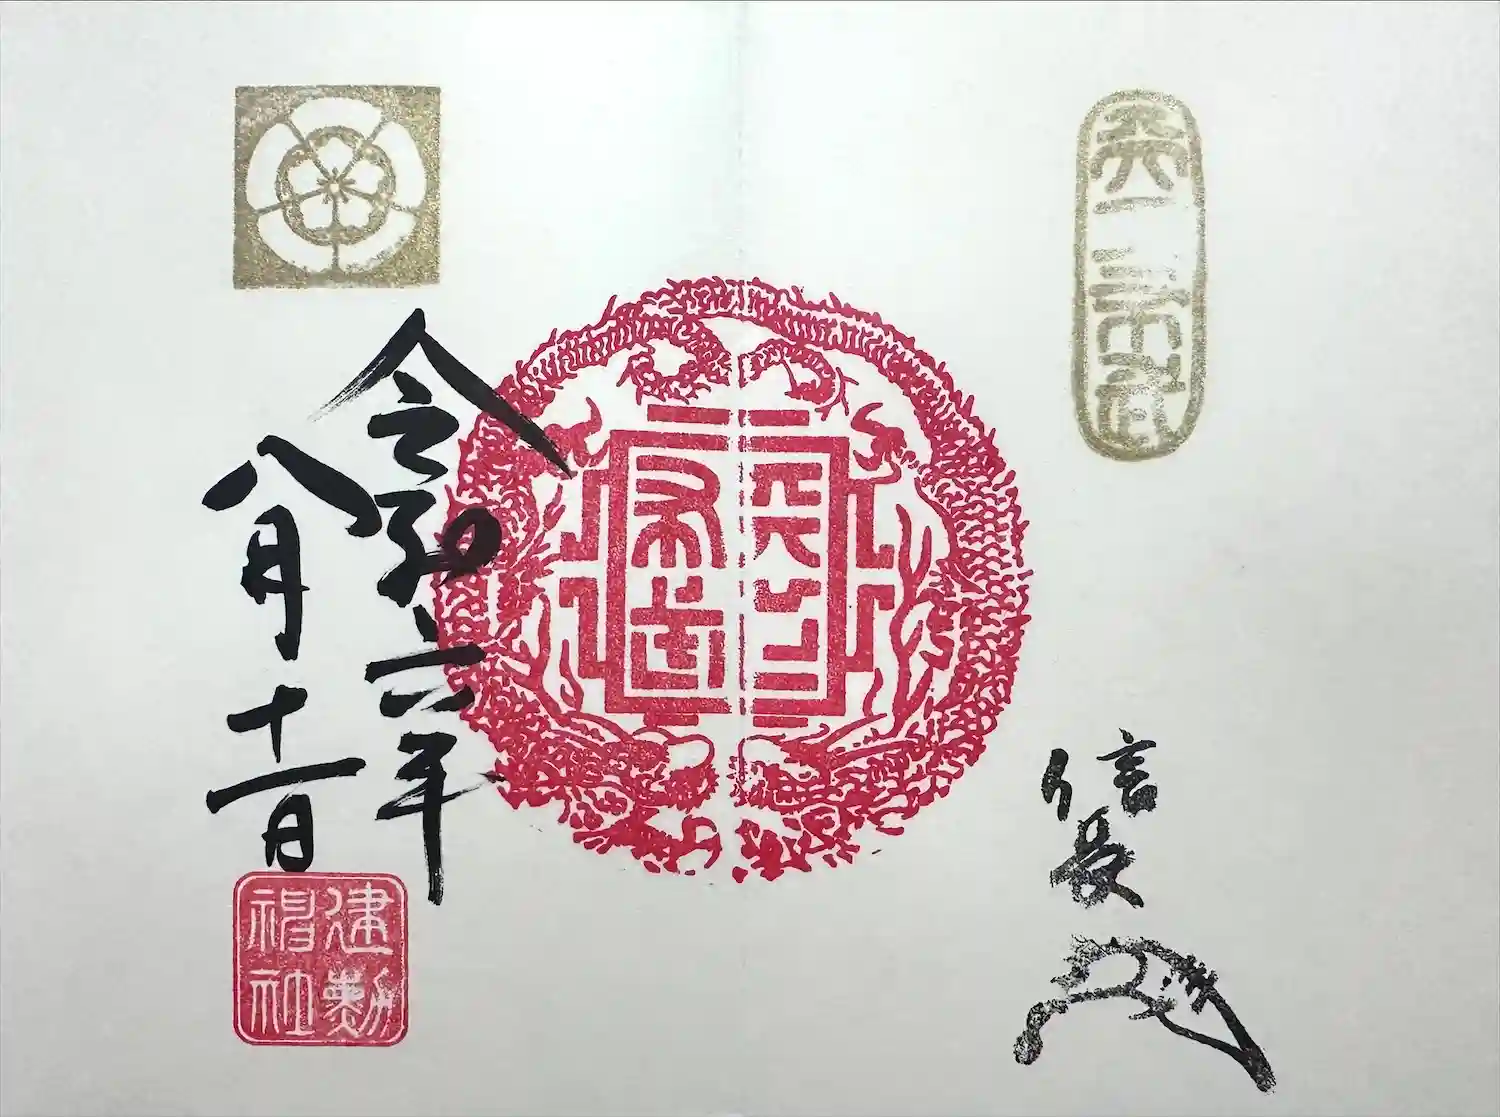 信長
天下
布武
令和六年
八月十一日
建勲
神社